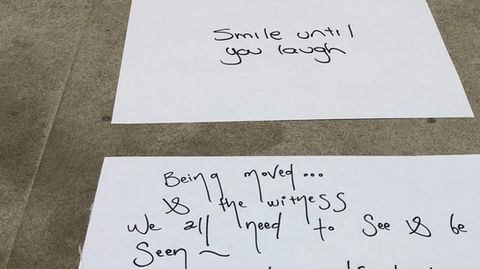 Smile until
you laugh
Being moved...
& the witness
We all need to see & be
seen ~